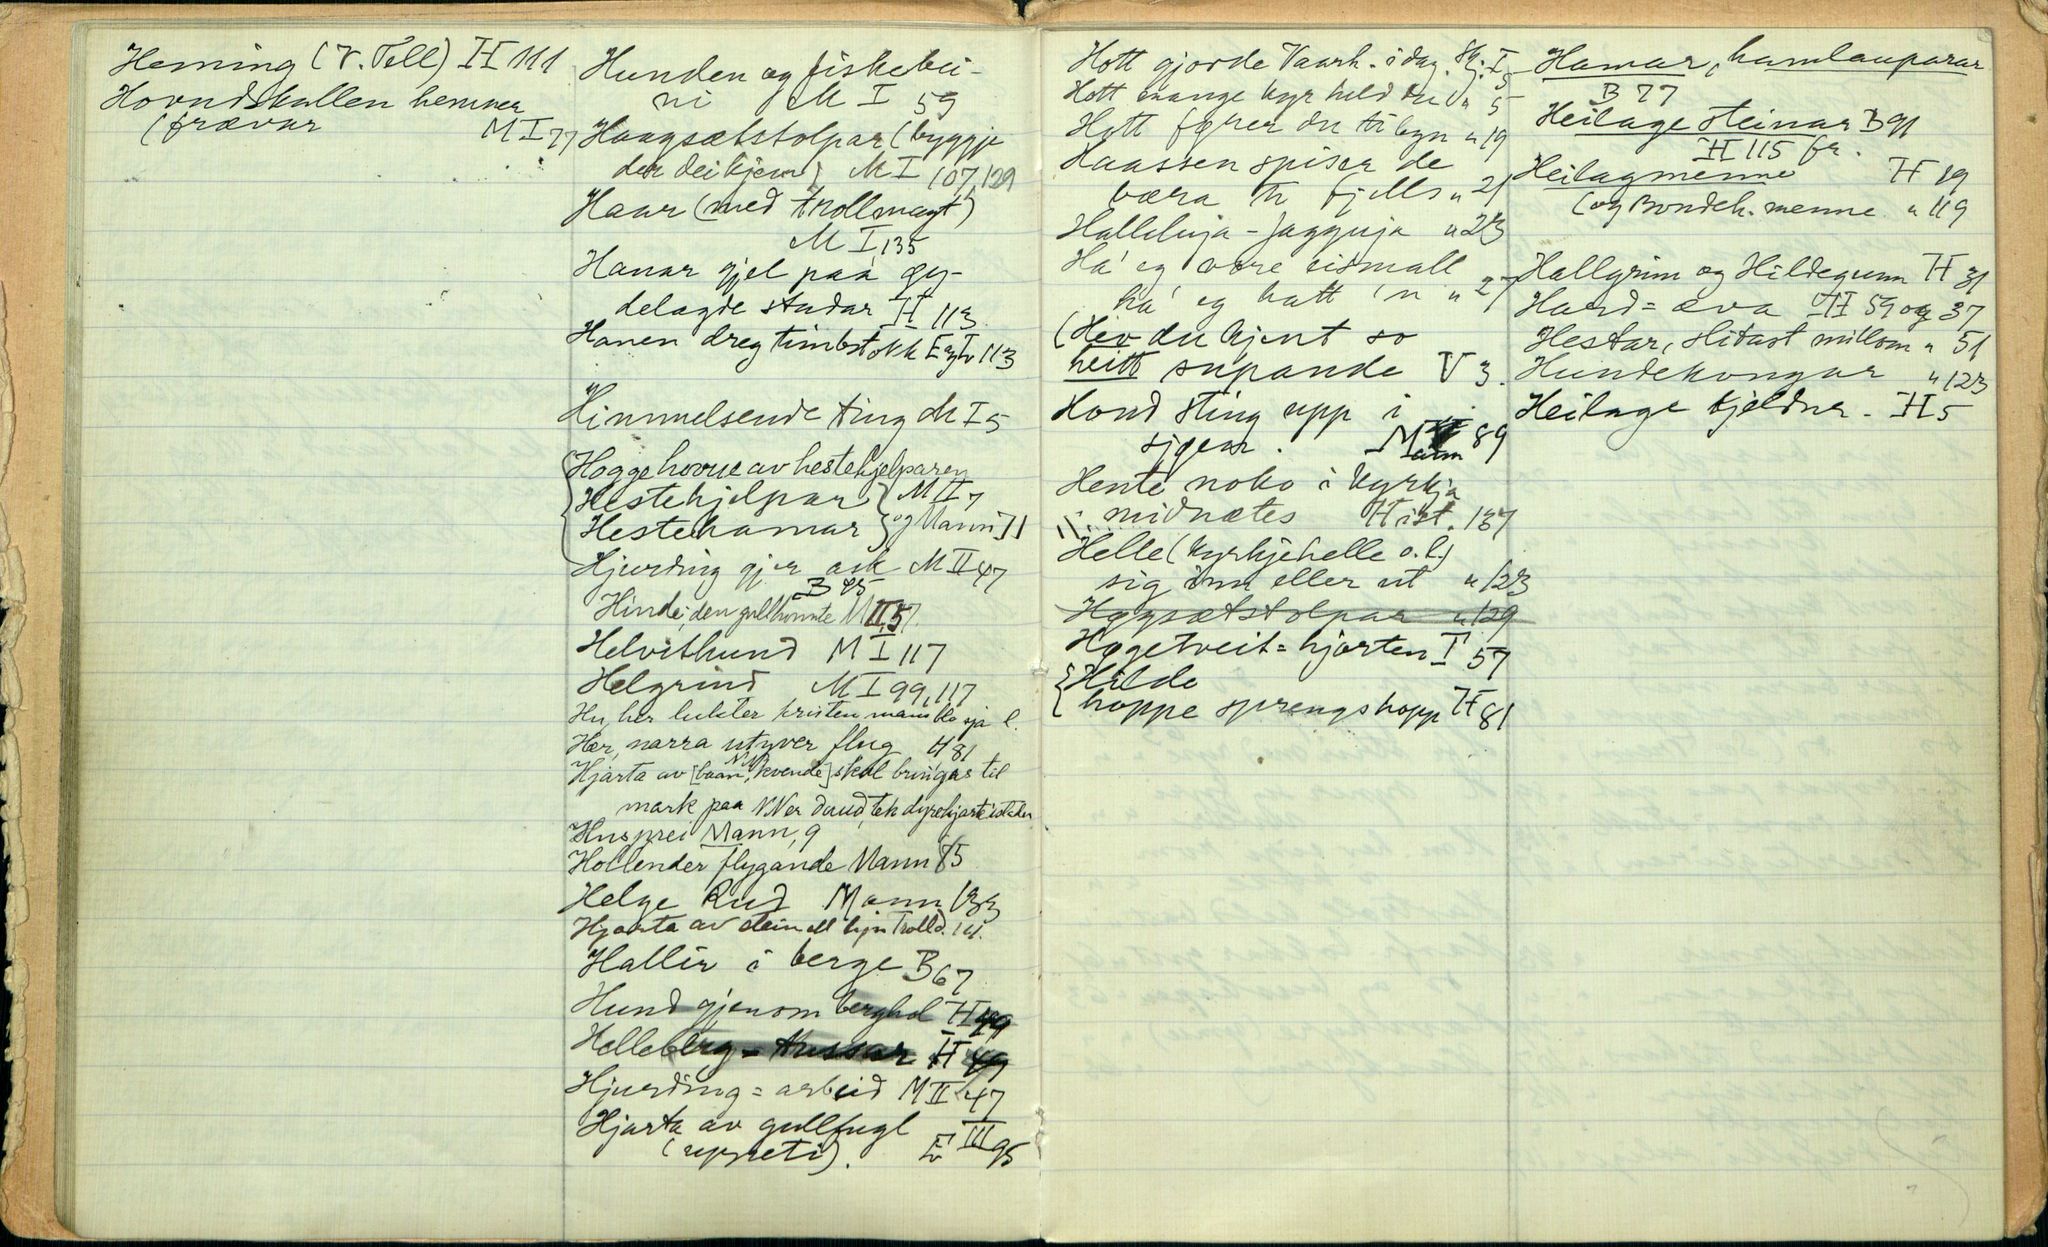 Heming (V. Tell) H 111
Hovudskallen hemner
(prævar M I 77
Hunden og fiskebei-
ni M I 59
Haagsætstolpar (byggje
der dei kjem) M I 107, 129
Haar (med trollmagt)
M I, 135
Hanar gjel paa øy-
delagde stadar H 113
Hanen dreg timbstokk Ev 113
Himmelsende ting M I 5
Hogge hovne av hestehjelparen
Hestehjelpar M II 7
Hestehamar og Mann 11
Hjurding gjer ask M II 47
B 45
Hinde, den gullhornte M II, 57
Helvithund M I 117
Helgrind M I 99, 117
Hu, her lukter kristen mans blo sjå l.
Hær, narra utyver flug H 81
Hjarta av [baan, kvende] skal bringas til
mark paa NN er daud, tek dyrehjarte istaden
Husprei Mann, 9
Hollender flygande Mann 85
Helge Rud Mann 133
Hjarta av stein ell. Trolld.
Hallir i berge B 67
Hund gjenom berghol H 49
Helleberg-tussar H 49
Hjurding = arbeid M II 47
Hjarta av gullfugl
(uppeti). Ev III 95
Hott gjorde Vaarh. i dag. Sk. I 5
Hott mange kyr held du " 5
Hott fører du til byn " 19
Haassen spiser de
væra til fjells " 21
Halleluja - jagguja " 23
Ha' eg vore eismall
ha' eg hatt 'n " 27
(Hev du kjent so
heitt supande V 3.
Hond sting upp i
sjøen. Mann 89
Hente noko i kyrkja
midnætes Hist. 137
Helle (kyrkjehelle o.l.)
sig inn eller ut " 123
Høgsætstolpar " 129
Høgetveit = hjorten I 57
Hilde
hoppe sprengshopp H 81
Hamar, hamlauparar
B 77
Heilage steinar B 91
H 115 fr.
Heilagmenne H 19
(og Bondeh. menne " 119
Hallgrim og Hildegunn H 31
Hard = æva H 59 og 37
Hestar, slitast millom " 51
Hundekongar " 123
Heilage kjeldur - H 5